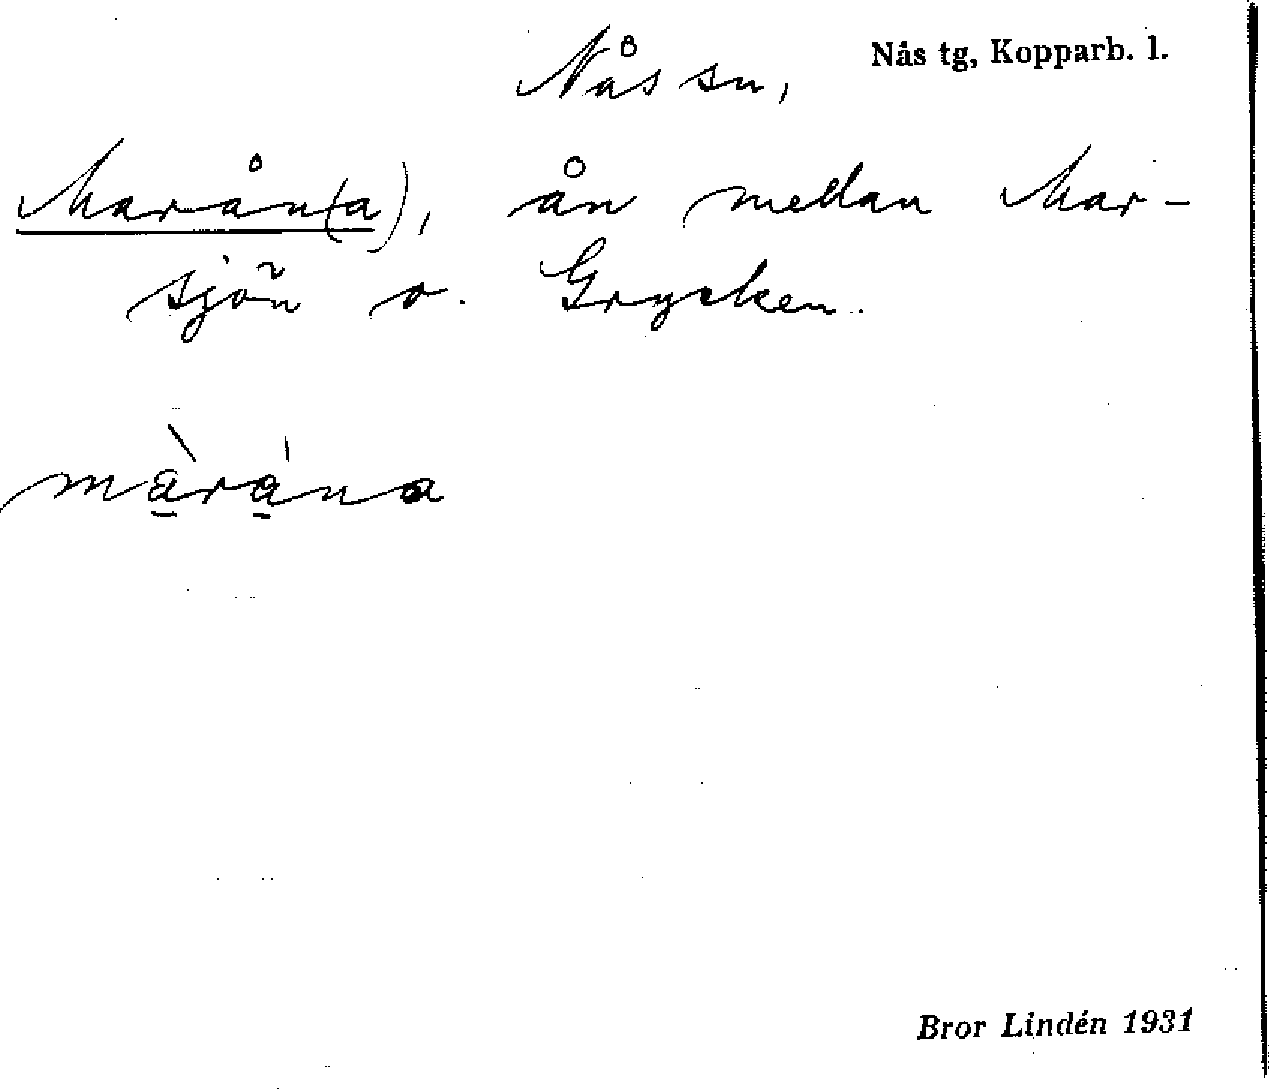 Nås sn, Nås tg, Kopparb. l.
Marån(a), ån medan Mar-
sjön o. Grycken.
màrána
Bror Lindén 1931